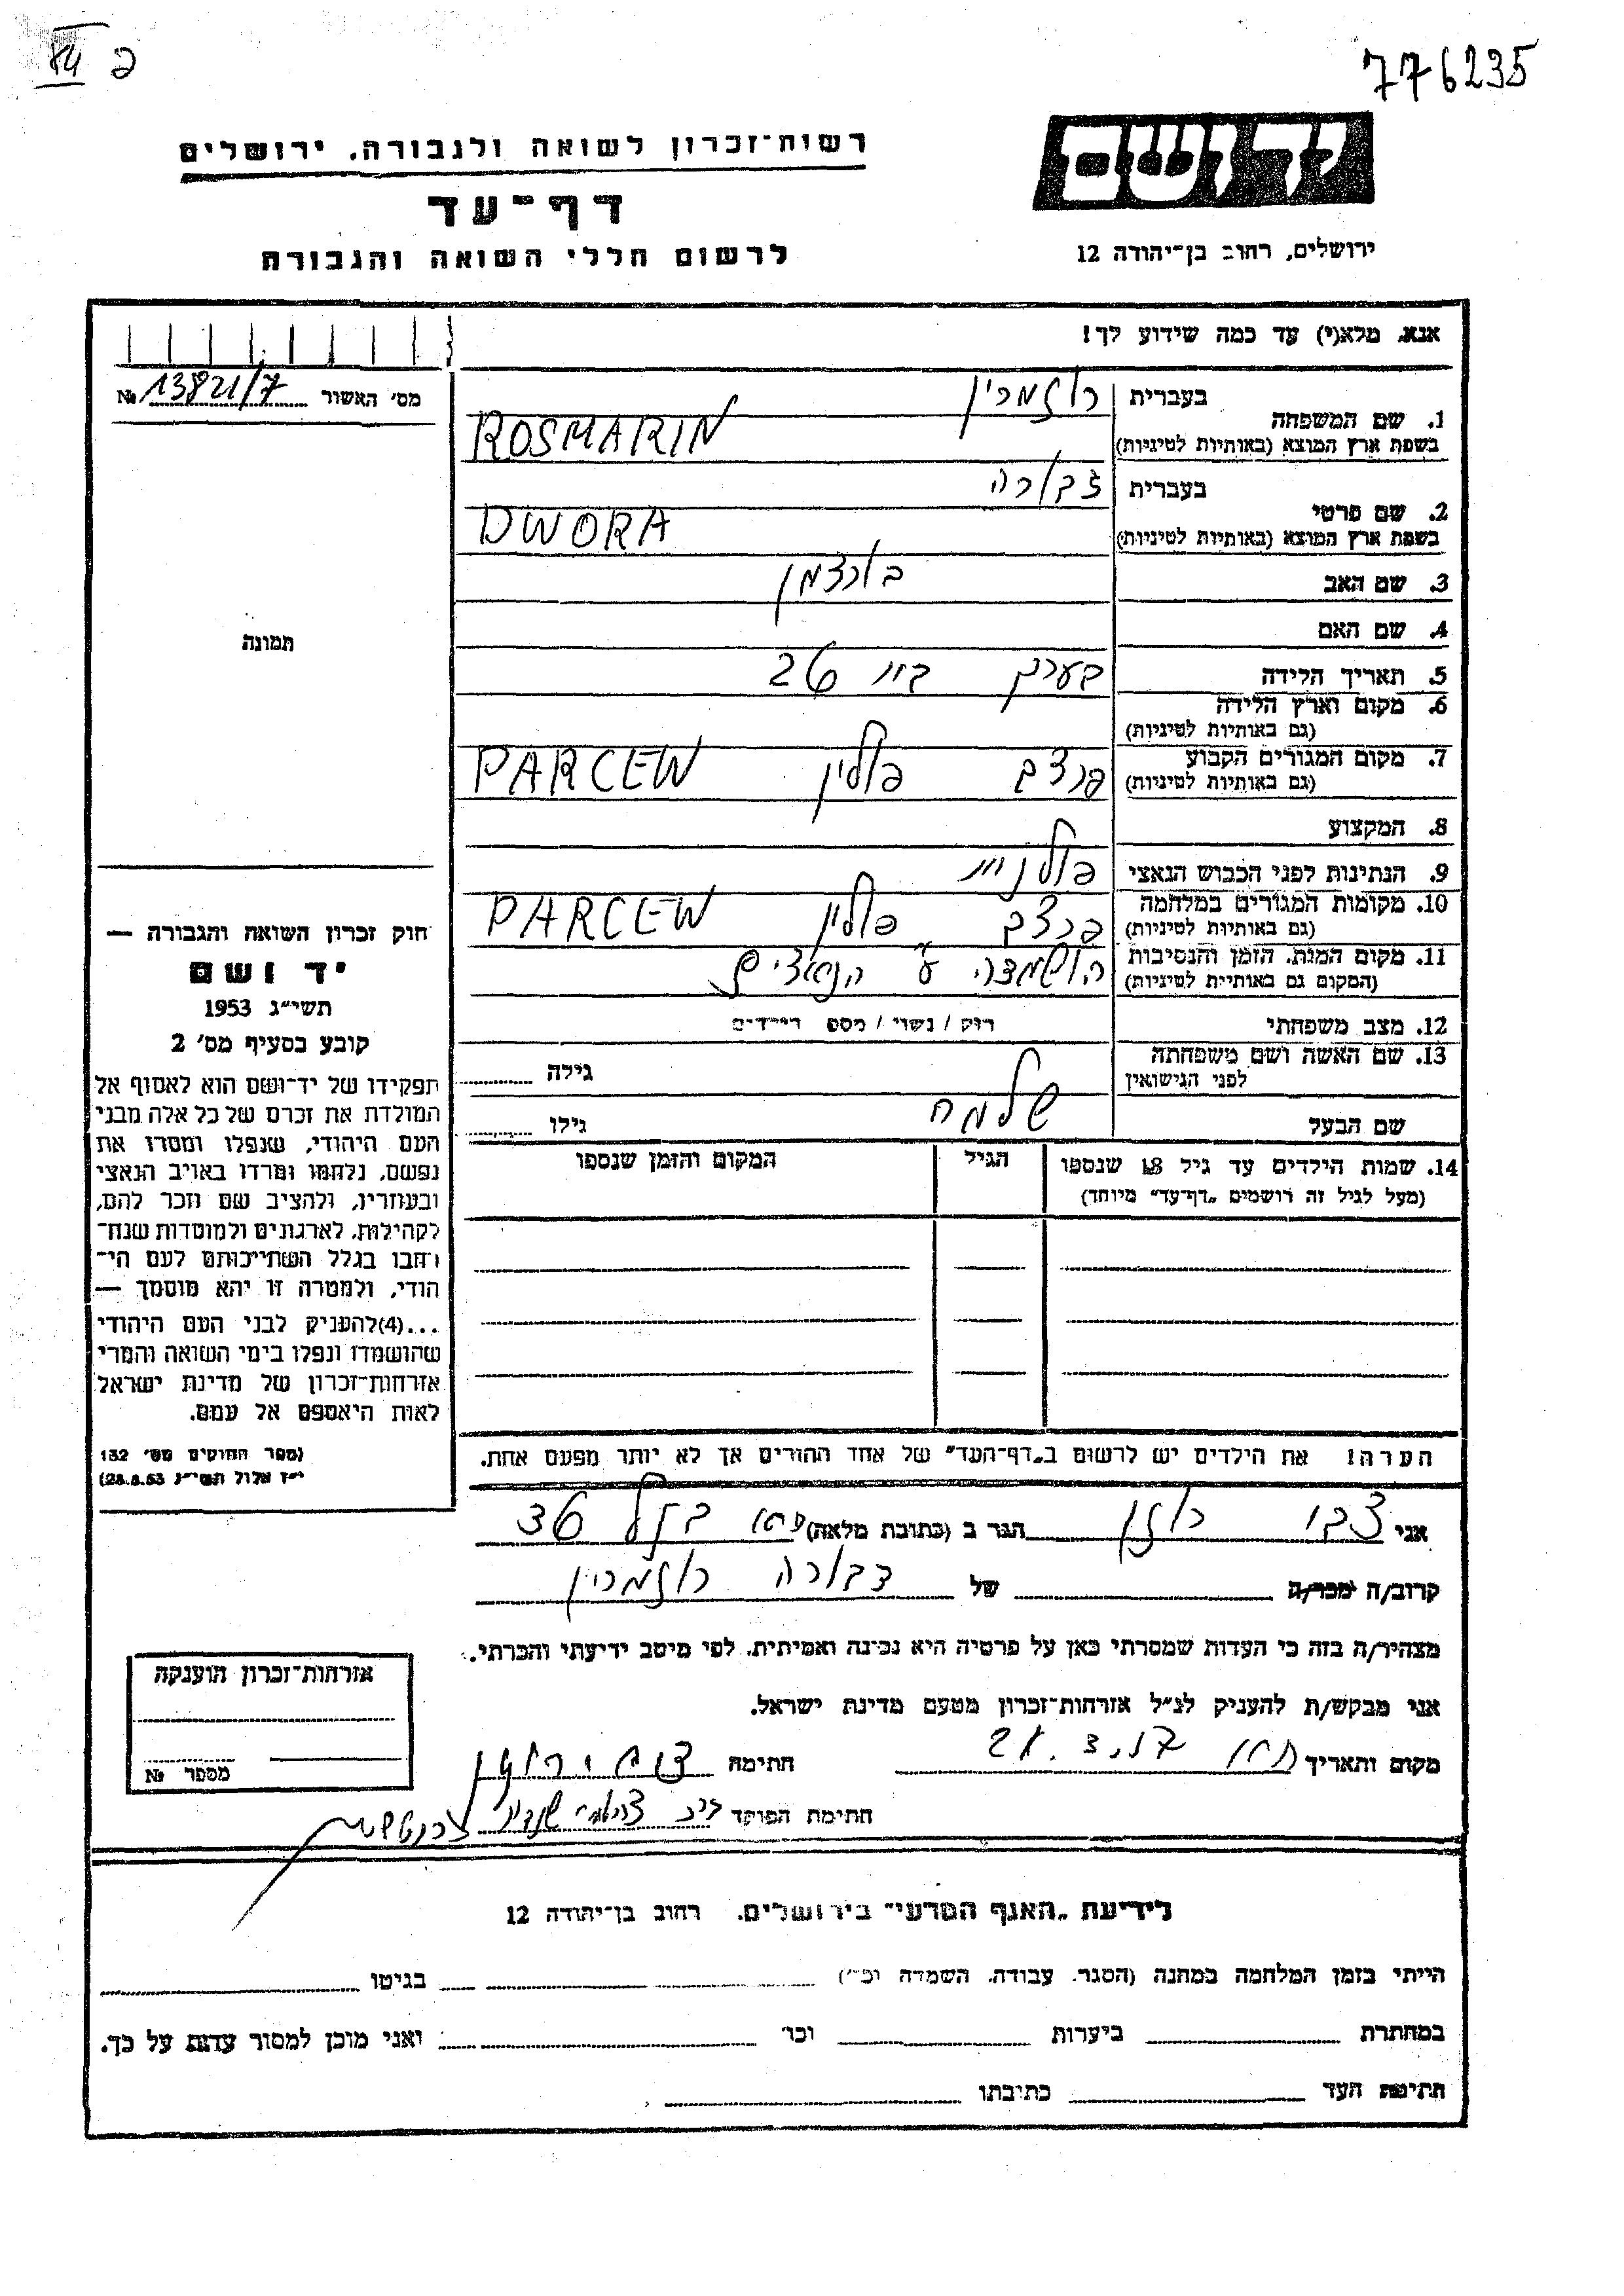 776235
יד ושם
ירושלים, רחוב בן־יהודה 12
רשות־זכרון לשואה ולגבורה, ירושלים
דף־עד
לרשום חללי השואה והגבורה
אנא, מלא(י) עד כמה שידוע לך!
מס׳ האשור № 13821/7
תמונה
1. שם המשפחה
בעברית רוזמרין
בשפת ארץ המוצא (באותיות לטיניות) ROSMARIN
2. שם פרטי
בעברית דבורה
בשפת ארץ המוצא (באותיות לטיניות) DWORA
3. שם האב
4. שם האם
5. תאריך הלידה בערך בת 26
6. מקום וארץ הלידה
(גם באותיות לטיניות)
7. מקום המגורים הקבוע פרצב פולין PARCEW
(גם באותיות לטיניות)
8. המקצוע
9. הנתינות לפני הכבוש הנאצי פולנית
10. מקומות המגורים במלחמה פרצב פולין PARCEW
(גם באותיות לטיניות)
11. מקום המות, הזמן והנסיבות הושמדה ע״י הנאצים
(המקום גם באותיות לטיניות)
12. מצב משפחתי רוק / נשוי / מספ הילדים
13. שם האשה ושם משפחתה גילה
לפני הנישואין
שם הבעל שלמה גילו
14. שמות הילדים עד גיל 18 שנספו הגיל המקום והזמן שנספו
(מעל לגיל זה רושמים „דף־עד״ מיוחד)
הערה! את הילדים יש לרשום ב„דף־העד״ של אחד ההורים אך לא יותר מפעם אחת.
חוק זכרון השואה והגבורה —
יד ושם
תשי״ג 1953
קובע בסעיף מס׳ 2
תפקידו של יד־ושם הוא לאסוף אל
המולדת את זכרם של כל אלה מבני
העם היהודי, שנפלו ומסרו את
נפשם, נלחמו ומרדו באויב הנאצי
ובעוזריו, ולהציב שם וזכר להם,
לקהילות, לארגונים ולמוסדות שנח־
רחבו בגלל השתייכותם לעם הי־
הודי, ולמטרה זו יהא מוסמך —
...(4)להעניק לבני העם היהודי
שהושמדו ונפלו בימי השואה והמרי
אזרחות־זכרון של מדינת ישראל
לאות היאספם אל עמם.
(ספר החוקים מס׳ 132
י״ז אלול תשי״ג 28.8.53)
אני צבי רוזן הגר ב (כתובת מלאה) 36
קרוב/ה מכר/ה של דבורה רוזמרין
מצהיר/ה בזה כי העדות שמסרתי כאן על פרטיה היא נכונה ואמיתית, לפי מיטב ידיעתי והכרתי.
אני מבקש/ת להעניק לנ״ל אזרחות־זכרון מטעם מדינת ישראל.
מקום ותאריך חתימה
חתימת הפוקד
אזרחות־זכרון הוענקה
מספר №
לידיעת „האגף המדעי״ בירושלים, רחוב בן־יהודה 12
הייתי בזמן המלחמה במחנה (הסגר, עבודה, השמדה וכ׳) בגיטו
במחתרת ביערות וכו׳ ואני מוכן למסור עדות על כך.
חתימת העד כתובתו